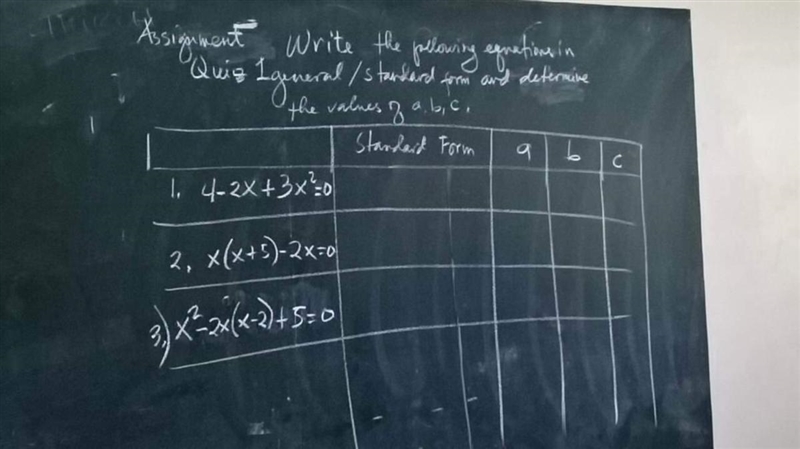 Assignment Write the following equations in
Quiz 1 general/standard form and determine
the values of a, b, c.
Standard Form a b c
1. 4-2x+3x²=0
2. x(x+5)-2x=0
3.) x²-2x(x-2)+5=0